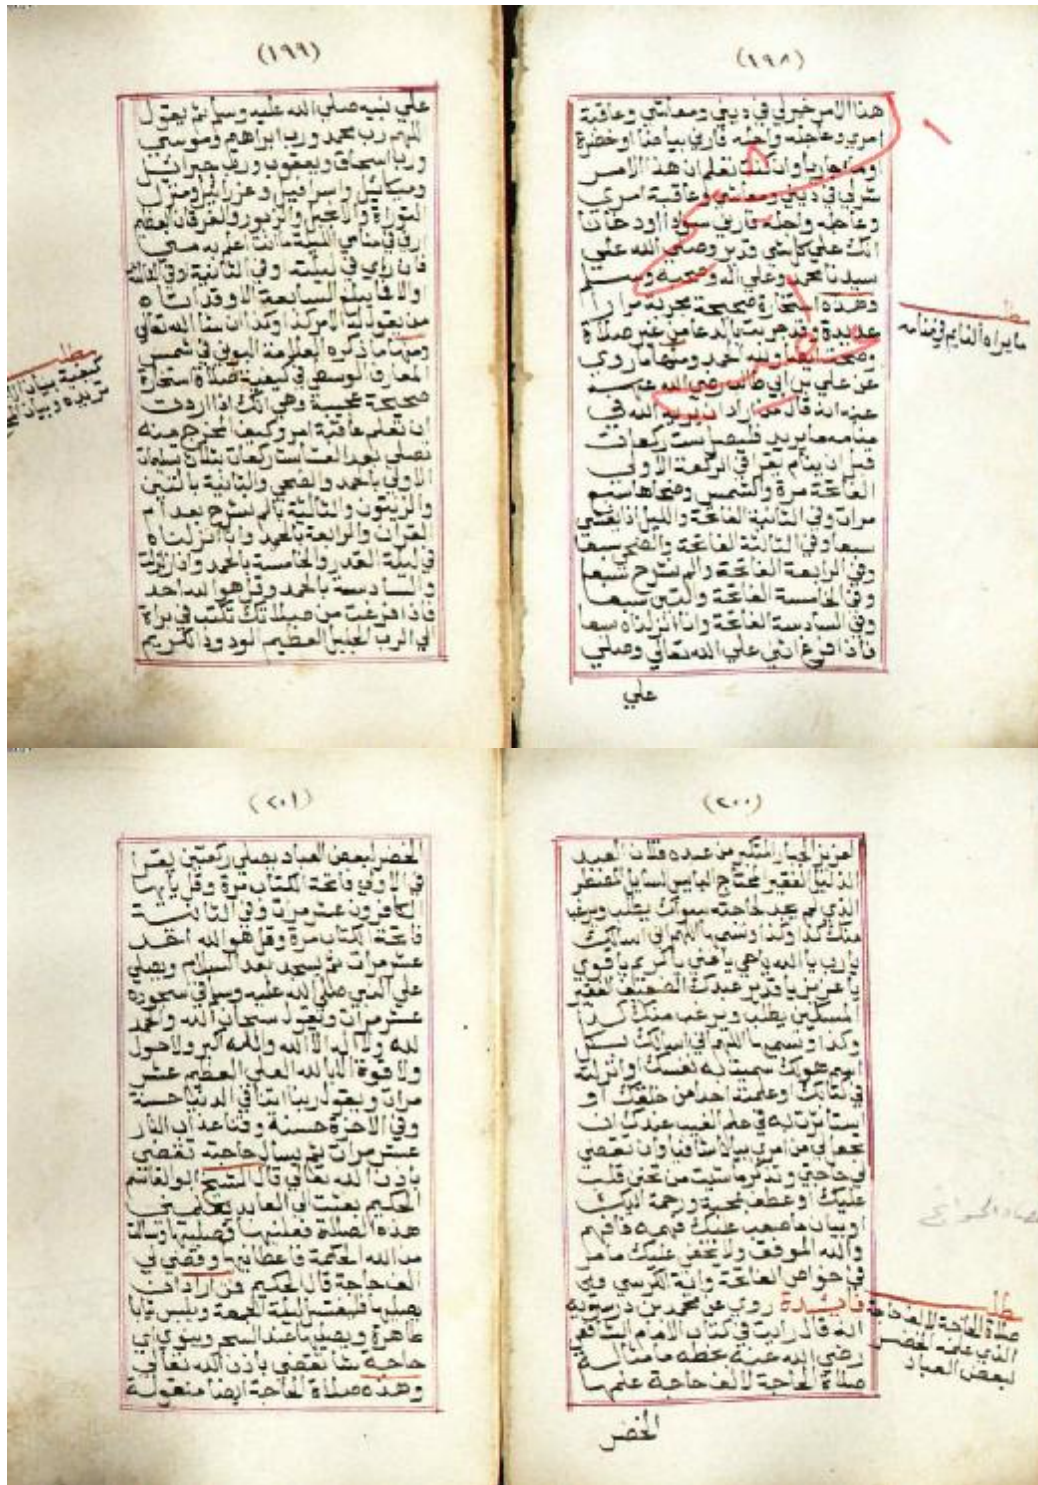 (١٩٨)
هذا الامر خير لي في ديني ومعاشي وعاقبة
امري وعاجله واجله فارني بياضا او خضرة
او ماء جاريا وان كنت تعلم ان هذا الامر
شر لي في ديني ومعاشي وعاقبة امري
وعاجله واجله فارني سوادا او دخانا
انك علي كل شي قدير وصلي الله علي
سيدنا محمد وعلي اله وصحبه وسلم
وهذه استخارة صحيحة مجربة مرارا
عديدة وقد جربت بالدعا من غير صلاة
وصحت ايضا ولله الحمد ومنها ما روي
عن علي بن ابي طالب رضي الله عنه
انه قال من اراد ان يريه الله في
منامه ما يريد فليصل ست ركعات
قبل ان ينام يقرا في الركعة الاولي
الفاتحة مرة والشمس وضحاها سبع
مرات وفي الثانية الفاتحة والليل اذا يغشي
سبعا وفي الثالثة الفاتحة والضحي سبعا
وفي الرابعة الفاتحة والم نشرح سبعا
وفي الخامسة الفاتحة والتين سبعا
وفي السادسة الفاتحة وانا انزلناه سبعا
فاذا فرغ اثني علي الله تعالي وصلي
علي
مطلب
ما يراه النايم في منامه
(١٩٩)
علي نبيه صلي الله عليه وسلم ثم يقول
اللهم رب محمد ورب ابراهيم وموسي
ورب اسحاق ويعقوب ورب جبرائيل
وميكائيل واسرافيل وعزرائيل ومنزل
التوراة والانجيل والزبور والفرقان العظيم
ارني في منامي الليلة ما انت اعلم به مني
فان راي في ليلته وفي الثانية
والا فما يبلغ السابعة الا وقد اتاه
من يقول له الامر كذا وكذا ان شا الله تعالي
ومنها ما ذكره العلامة البوني في شمس
المعارف الوسطي في كيفية صلاة استخارة
صحيحة عجيبة وهي انك اذا اردت
ان تعلم عاقبة امر وكيف المخرج منه
تصلي بعد العشا ست ركعات بثلاث تسليمات
الاولي بالحمد والضحي والثانية بالتين
والزيتون والثالثة بالم نشرح بعد ام
القران والرابعة بالحمد وانا انزلناه
في ليلة القدر والخامسة بالحمد واذا زلزلت
والسادسة بالحمد وقل هو الله احد
فاذا فرغت من صلاتك تكتب في براة
الي الرب الجليل العظيم الودود الكريم
مطلب
كيفية بيان
تريده وبيان
(٢٠٠)
العزيز الجبار المتكبر من عبده فلان العبد
الذليل الفقير المحتاج البايس السايل المضطر
الذي لم يجد لحاجته سواك يطلب ويرغب
منك كذا وكذا وتسمي اللهم اني اسالك
يا رب يا الله يا حي يا غني يا كريم يا قوي
يا عزيز يا قدير عبدك الضعيف الفقير
المسكين يطلب ويرغب منك كذا
وكذا وتسمي اللهم اني اسالك بكل
اسم هو لك سميت به نفسك او انزلته
في كتابك او علمته احد من خلقك او
استاثرت به في علم الغيب عندك ان
تجعل لي من امري بيانا شافيا وان تقضي
لي حاجتي وتذكر ما شيت من تحنن قلب
عليك او عطف محبة ورحمة اليك
او بيان ما صعب عليك فهمه فافهم
والله الموفق ولا تخفي عليك ما مر
في خواص الفاتحة واية الكرسي
فايدة روي عن محمد بن درستويه
انه قال رايت في كتاب الامام الشافعي
رضي الله عنه بخطه ما مثاله
صلاة الحاجة لالف حاجة علمها
الخضر
مطلب
صلاة الحاجة لالف حاجة
الذي علمه الخضر
لبعض العباد
(٢٠١)
الخضر لبعض العباد يصلي ركعتين يقرا
في الاولي فاتحة الكتاب مرة وقل يا ايها
الكافرون عشر مرات وفي الثانية
فاتحة الكتاب مرة وقل هو الله احد
عشر مرات ثم يسجد بعد السلام ويصلي
علي النبي صلي الله عليه وسلم في سجوده
عشر مرات ويقول سبحان الله والحمد
لله ولا اله الا الله والله اكبر ولا حول
ولا قوة الا بالله العلي العظيم عشر
مرات ويقول ربنا اتنا في الدنيا حسنة
وفي الاخرة حسنة وقنا عذاب النار
عشر مرات ثم يسال حاجته تقضي
باذن الله تعالي قال الشيخ ابو القاسم
الحكيم بعثت الي العابد يعلمني
هذه الصلاة فعلمنيها فصليتها وسالت
من الله الحكمة فاعطانيها وقضي لي
الف حاجة قال الحكيم فمن اراد ان
يصليها فليغتسل ليلة الجمعة ويلبس ثيابا
طاهرة ويصليها عند السحر وينوي اي
حاجة شا تقضي باذن الله تعالي
وهذه صلاة الحاجة ايضا منقولة